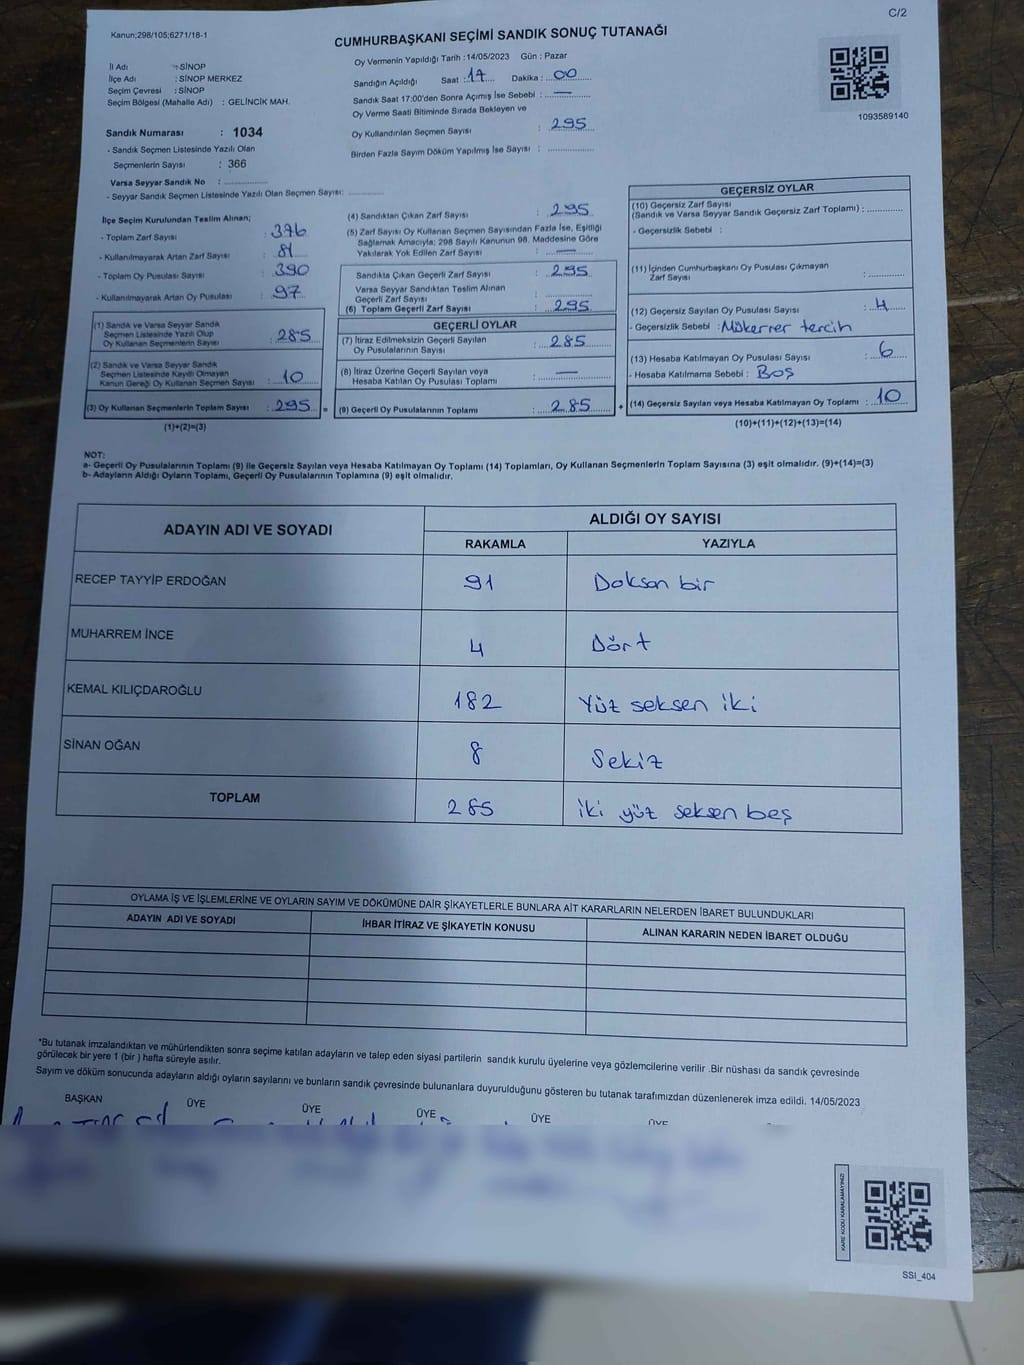 C/2
Kanun;298/105;6271/18-1
CUMHURBAŞKANI SEÇİMİ SANDIK SONUÇ TUTANAĞI
İl Adı : SİNOP
İlçe Adı : SİNOP MERKEZ
Seçim Çevresi : SİNOP
Seçim Bölgesi (Mahalle Adı) : GELİNCİK MAH.
Sandık Numarası : 1034
- Sandık Seçmen Listesinde Yazılı Olan
Seçmenlerin Sayısı : 366
Varsa Seyyar Sandık No :
- Seyyar Sandık Seçmen Listesinde Yazılı Olan Seçmen Sayısı:
Oy Vermenin Yapıldığı Tarih :14/05/2023 Gün : Pazar
Sandığın Açıldığı Saat : 17 Dakika : 00
Sandık Saat 17:00'den Sonra Açımış İse Sebebi : —
Oy Verme Saati Bitiminde Sırada Bekleyen ve
Oy Kullandırılan Seçmen Sayısı : 295
Birden Fazla Sayım Döküm Yapılmış İse Sayısı :
1093589140
İlçe Seçim Kurulundan Teslim Alınan;
- Toplam Zarf Sayısı : 376
- Kullanılmayarak Artan Zarf Sayısı : 81
- Toplam Oy Pusulası Sayısı : 390
- Kullanılmayarak Artan Oy Pusulası : 97
(1) Sandık ve Varsa Seyyar Sandık
Seçmen Listesinde Yazılı Olup
Oy Kullanan Seçmenlerin Sayısı : 285
(2) Sandık ve Varsa Seyyar Sandık
Seçmen Listesinde Kayıtlı Olmayan
Kanun Gereği Oy Kullanan Seçmen Sayısı : 10
(3) Oy Kullanan Seçmenlerin Toplam Sayısı : 295 =
(1)+(2)=(3)
(4) Sandıktan Çıkan Zarf Sayısı : 295
(5) Zarf Sayısı Oy Kullanan Seçmen Sayısından Fazla İse, Eşitliği
Sağlamak Amacıyla; 298 Sayılı Kanunun 98. Maddesine Göre
Yakılarak Yok Edilen Zarf Sayısı : —
Sandıkta Çıkan Geçerli Zarf Sayısı : 295
Varsa Seyyar Sandıktan Teslim Alınan
Geçerli Zarf Sayısı :
(6) Toplam Geçerli Zarf Sayısı : 295
GEÇERLİ OYLAR
(7) İtiraz Edilmeksizin Geçerli Sayılan
Oy Pusulalarının Sayısı : 285
(8) İtiraz Üzerine Geçerli Sayılan veya
Hesaba Katılan Oy Pusulası Toplamı : —
(9) Geçerli Oy Pusulalarının Toplamı : 285 +
GEÇERSİZ OYLAR
(10) Geçersiz Zarf Sayısı
(Sandık ve Varsa Seyyar Sandık Geçersiz Zarf Toplamı) :
- Geçersizlik Sebebi :
(11) İçinden Cumhurbaşkanı Oy Pusulası Çıkmayan
Zarf Sayısı :
(12) Geçersiz Sayılan Oy Pusulası Sayısı : 4
- Geçersizlik Sebebi : Mükerrer tercih
(13) Hesaba Katılmayan Oy Pusulası Sayısı : 6
- Hesaba Katılmama Sebebi : Boş
(14) Geçersiz Sayılan veya Hesaba Katılmayan Oy Toplamı : 10
(10)+(11)+(12)+(13)=(14)
NOT:
a- Geçerli Oy Pusulalarının Toplamı (9) ile Geçersiz Sayılan veya Hesaba Katılmayan Oy Toplamı (14) Toplamları, Oy Kullanan Seçmenlerin Toplam Sayısına (3) eşit olmalıdır. (9)+(14)=(3)
b- Adayların Aldığı Oyların Toplamı, Geçerli Oy Pusulalarının Toplamına (9) eşit olmalıdır.
ADAYIN ADI VE SOYADI ALDIĞI OY SAYISI
RAKAMLA YAZIYLA
RECEP TAYYİP ERDOĞAN 91 Doksan bir
MUHARREM İNCE 4 Dört
KEMAL KILIÇDAROĞLU 182 Yüz seksen iki
SİNAN OĞAN 8 Sekiz
TOPLAM 285 iki yüz seksen beş
OYLAMA İŞ VE İŞLEMLERİNE VE OYLARIN SAYIM VE DÖKÜMÜNE DAİR ŞİKAYETLERLE BUNLARA AİT KARARLARIN NELERDEN İBARET BULUNDUKLARI
ADAYIN ADI VE SOYADI İHBAR İTİRAZ VE ŞİKAYETİN KONUSU ALINAN KARARIN NEDEN İBARET OLDUĞU
*Bu tutanak imzalandıktan ve mühürlendikten sonra seçime katılan adayların ve talep eden siyasi partilerin sandık kurulu üyelerine veya gözlemcilerine verilir .Bir nüshası da sandık çevresinde
görülecek bir yere 1 (bir ) hafta süreyle asılır.
Sayım ve döküm sonucunda adayların aldığı oyların sayılarını ve bunların sandık çevresinde bulunanlara duyurulduğunu gösteren bu tutanak tarafımızdan düzenlenerek imza edildi. 14/05/2023
BAŞKAN ÜYE ÜYE ÜYE ÜYE ÜYE
KARE KODU KARALAMAYINIZ!
SSI_404